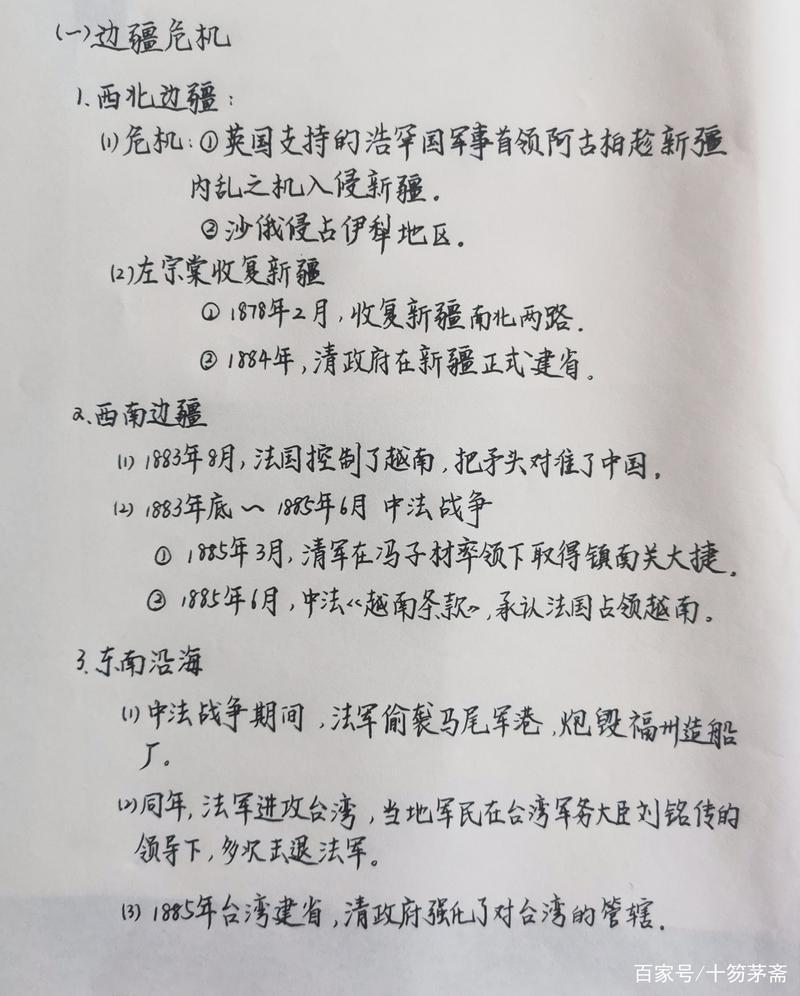 (一)边疆危机
1.西北边疆:
(1)危机:①英国支持的浩罕国军事首领阿古柏趁新疆
内乱之机入侵新疆.
②沙俄侵占伊犁地区.
(2)左宗棠收复新疆
①1878年2月,收复新疆南北两路.
②1884年,清政府在新疆正式建省。
2.西南边疆
(1)1883年8月,法国控制了越南,把矛头对准了中国.
(2)1883年底~1885年6月 中法战争
①1885年3月,清军在冯子材率领下取得镇南关大捷.
②1885年6月,中法《越南条款》,承认法国占领越南。
3.东南沿海
(1)中法战争期间,法军偷袭马尾军港,炮毁福州造船
厂。
(2)同年,法军进攻台湾,当地军民在台湾军务大臣刘铭传的
领导下,多次击退法军。
(3)1885年台湾建省,清政府强化了对台湾的管辖.
百家号/十笏茅斋